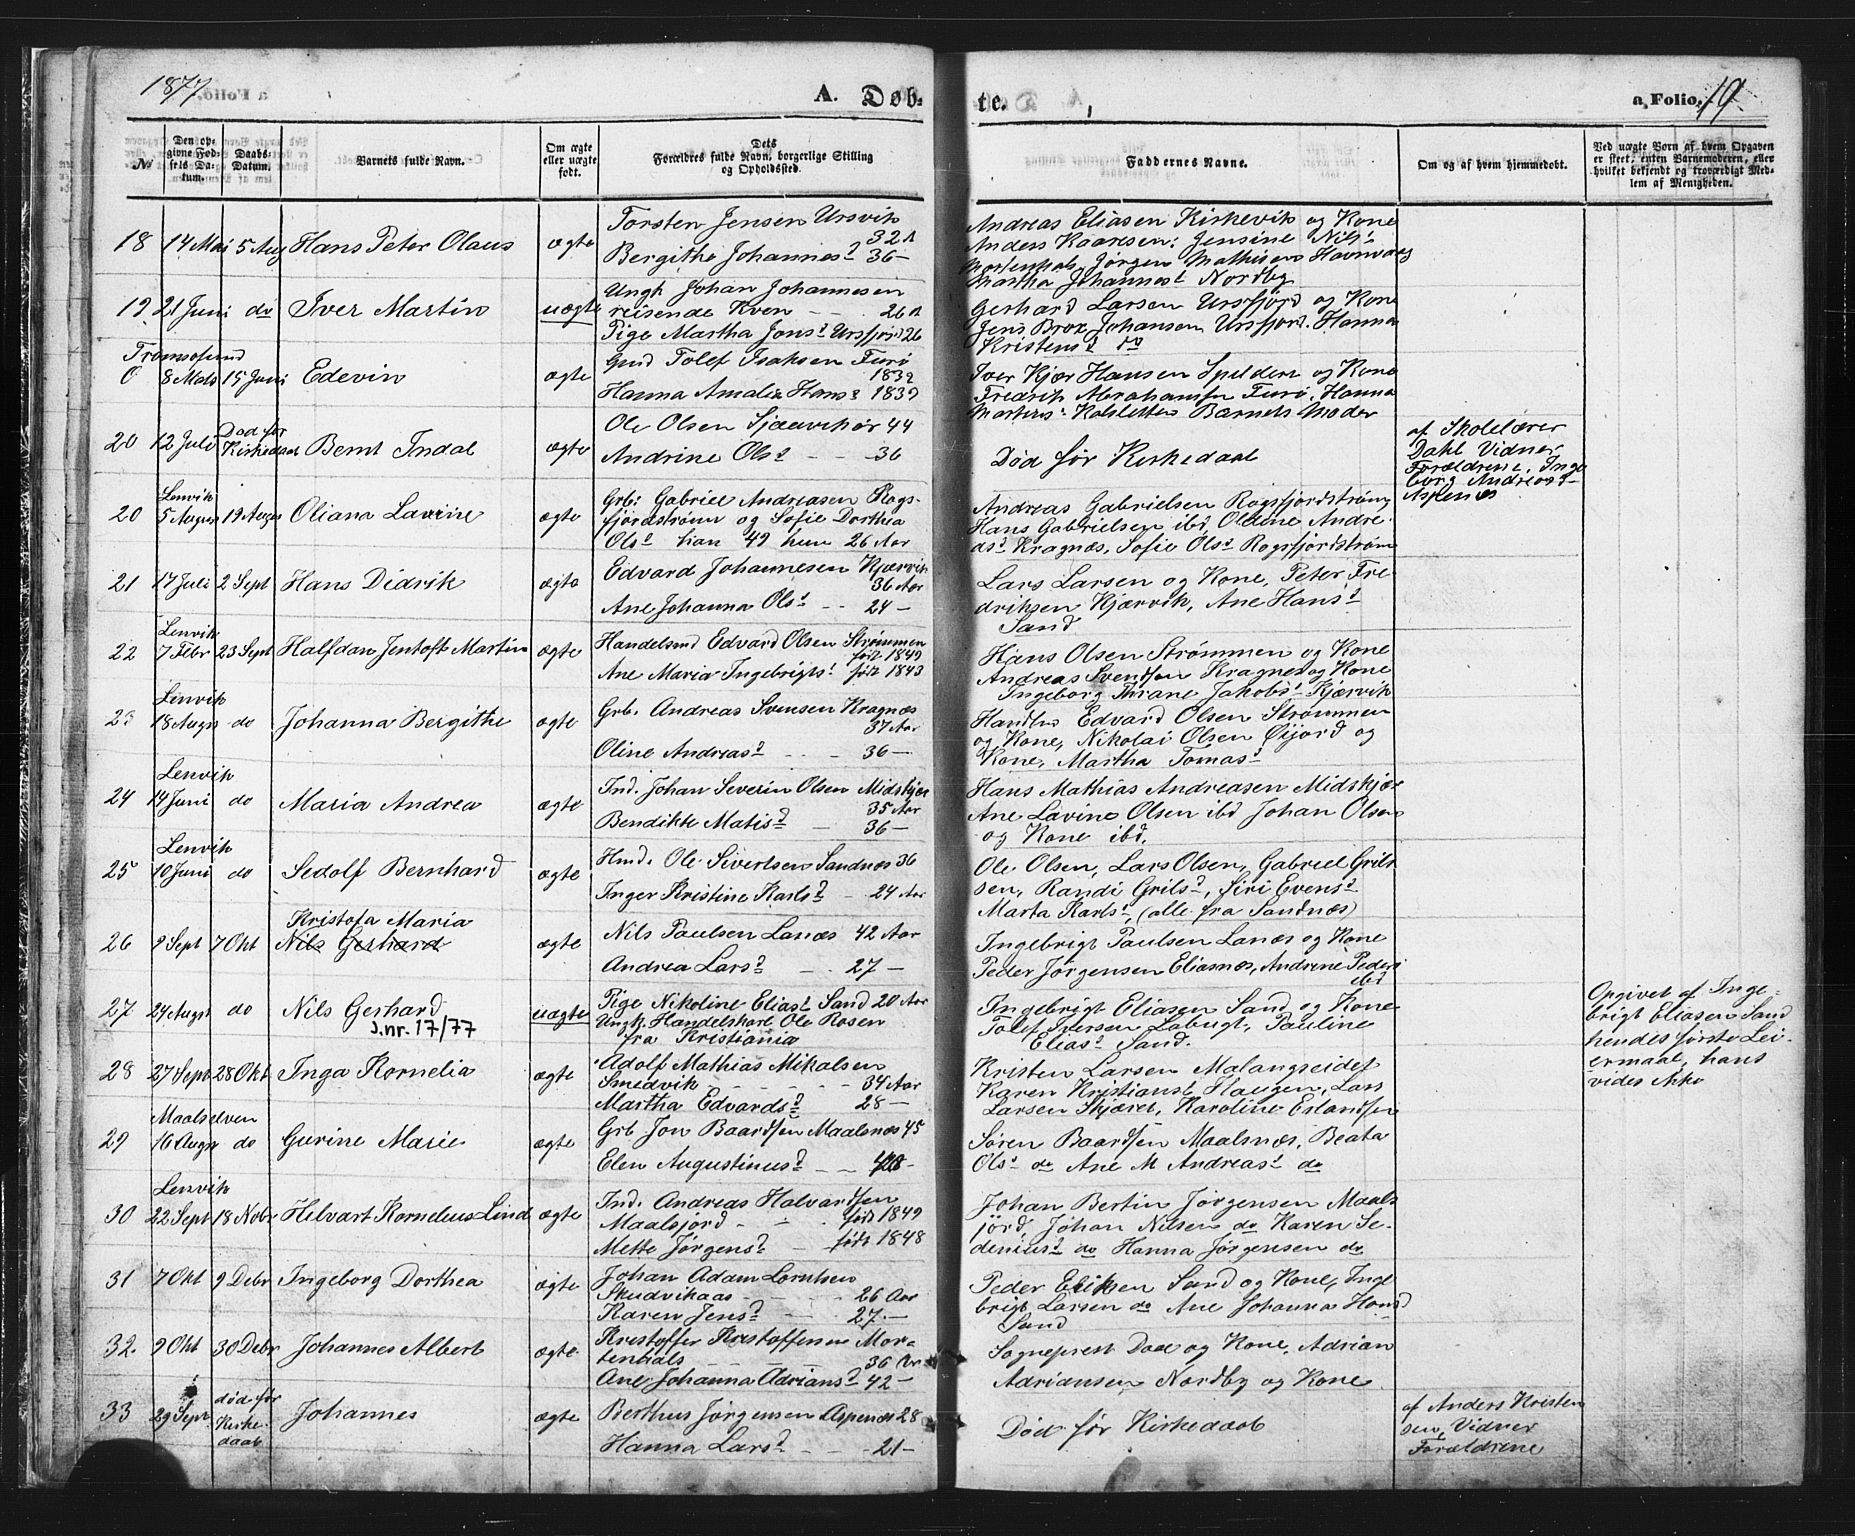 1877
A. Døb-
te.
a Folio, 19.
No
Den op-
givne Fød-
sels Da-
tum.
Daabs-
Datum.
Barnets fulde Navn.
Om ægte
eller uægte
født.
Dets
Forældres fulde Navn, borgerlige Stilling
og Opholdssted.
Faddernes Navne.
Om og af hvem hjemmedøbt.
Ved uægte Børn af hvem Opgaven
er skeet, enten Barnemoderen, eller
hvilket bekjendt og troværdigt Med-
lem af Menigheden.
18 14 Mai 5 Aug Hans Peter Olaus ægte
Torsten Jensen Ursvik
32 A
Bergithe Johannesd 36 —
Andreas Eliasen Kirkevik og Kone
Anders Kaaresen; Jensine Nilsd
Mortenhals, Jørgen Mathisen Havnvaag
Martha Johannesd Nordby
19. 21 Juni do Iver Martin uægte
Ungk Johan Johannesen
reisende Kven - - 26 A
Pige Martha Jonsd Ursfjord 26
Gerhard Larsen Ursfjord og Kone
Jens Brox Johansen Ursfjord. Hanna
Kristensd do
Tromsøsund
0 8 Mats 15 Juni Edevin ægte
Gmd Tolef Isaksen Furø
1832
Hanna Amalia Hansd 1839
Iver Kjær Hansen Spildern og Kone
Fredrik Abrahamsen Furø, Hanna
Martensd Kalsletten Barnets Moder
20 12 Juli Død før Kirkedaab Bernt Indal ægte
Ole Olsen Sjaavikør 44
Andrine Olsd - - 36
Død før Kirkedaab
af Skolelærer
Dahl Vidner
Forældrene, Inge
borg Andreasd
Aspenes
Lenvik
20 5 August 19 August Oliana Lavine ægte
Grb: Gabriel Andreasen Rogs-
fjordstrøm og Sofie Dorthea
Olsd han 49 hun 26 Aar
Andreas Gabrielsen Rogsfjordstrøm,
Hans Gabrielsen ibd, Oldine Andre-
asd Kragnæs, Sofie Olsd Rogsfjordstrøm
21 17 Juli 2 Sept Hans Didrik ægte
Edvard Johannesen Kjærvik
36 Aar
Ane Johanna Olsd - - 24 —
Lars Larsen og Kone, Peter Fre-
driksen Kjærvik, Ane Hansd
Sand
Lenvik
22 7 Febr 23 Sept Halfdan Jentoft Martin ægte
Handelsmd Edvard Olsen Strømmen
født 1849
Ane Maria Ingebrigtsd født 1843
Hans Olsen Strømmen og Kone
Andreas Svendsen Kragnes og Kone
Ingeborg Thrane Jakobsd Kjærvik
Lenvik
23 18 Augs do Johanna Bergithe ægte
Grb. Andreas Svensen Kragnæs
37 Aar
Oline Andreasd - - 36 —
Handlm Edvard Olsen Strømmen
og Kone, Nikolai Olsen Øijord og
Kone, Martha Tomasd
Lenvik
24 14 Juni do Maria Andrea ægte
Ind. Johan Severin Olsen Midskjær
35 Aar
Bendikte Matisd - 36 —
Hans Mathias Andreasen Midskjær
Ane Lavine Olsen ibd Johan Olsen
og Kone ibd.
Lenvik
25 10 Juni do Sedolf Bernhard ægte
Hmd. Ole Sivertsen Sandnæs 36
Inger Kristine Karlsd - 24 Aar
Ole Olsen, Lars Olsen, Gabriel Grils
sen, Randi Grilsd, Siri Evensd
Marta Karlsd, (alle fra Sandnæs)
Kristofa Maria
26 9 Sept 7 Okt Nils Gerhard ægte
Nils Paulsen Lanæs 42 Aar
Andrea Larsd - - 27 —
Ingebrigt Paulsen Lanæs og Kone
Peder Jørgensen Eliasnæs, Andrine Pedersd
ibd
27 24 Augst do Nils Gerhard uægte
J.nr. 17/77
Pige Nikoline Eliasd Sand 20 Aar
Ungk. Handelskarl Ole Rosen
fra Kristiania
Ingebrigt Eliasen Sand og Kone
Tolef Iversen Labugt, Pauline
Eliasd Sand.
Opgivet af Inge-
brigt Eliasen Sand
hendes første Lei-
ermaal, hans
vides ikke
28 27 Sept 28 Okt Inga Kornelia ægte
Adolf Mathias Mikalsen
Smedvik - - - 34 Aar
Martha Edvardsd 28 —
Kristen Larsen Malangseidet
Karen Kristiansd Haugen, Lars
Larsen Skjæret, Karoline Erlandsen
Maalselven
29 16 Augs do Gurine Marie ægte
Grb Jon Baardsen Maalsnæs 45
Elen Augustinusd - - 48 -
Søren Baardsen Maalsnæs, Beata
Olsd do Ane M Andreasd do
Lenvik
30 22 Sept 18 Nobr Hilvart Kornelius Lind ægte
Ind. Andreas Halvardsen
Maalsfjord - - født 1849
Mette Jørgensd - født 1848
Johan Bertin Jørgensen Maals
fjord, Johan Nilsen do Karen Se-
deniusd do Hanna Jørgensen do
31 7 Okt 9 Debr Ingeborg Dorthea ægte
Johan Adam Lorntsen
Skudvikaas - - - 26 Aar
Karen Jensd - - 27 —
Peder Eriksen Sand og Kone, Inge
brigt Larsen do Ane Johanna Hansd
Sand
32. 9 Okt 30 Debr Johannes Albert ægte
Kristoffer Kristoffersen Mor-
tenhals - - - 36 Ar
Ane Johanna Adriansd 42 —
Sogneprest Daae og Kone, Adrian
Adriansen Nordby og Kone
33 29 Sept død før Kirke- daab Johannes ægte
Berthus Jørgensen Aspenæs 28
Hanna Larsd - - - 21 —
Død før Kirkedaab
af Anders Kristen
sen, Vidner
Forældrene